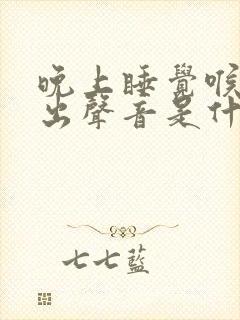 晚上睡覺喉
出聲音是什
七七藍